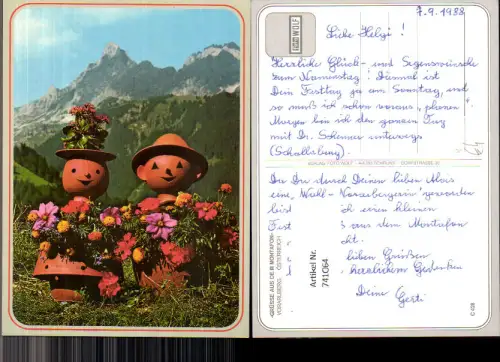 7.9.1988
WOLF
Liebe Helgi!
Herzliche Glück- und Segenswünsche
zum Namenstag! Diesmal ist
Dein Festtag ja am Sonntag, und
so muß ich schon voraus planen.
Morgen bin ich den ganzen Tag
mit Dr. unterwegs
(Schallaburg).
Da Du durch Deinen lieben Mann
eine „Wahl- Vorarlbergerin" geworden
bist ich einen kleinen
Fest aus dem Montafon
cht.
lieben Grüßen
herzlichem Gedenken
Deine Gerti
«GRÜSSE AUS DEM MONTAFON»
VORARLBERG, ÖSTERREICH
Artikel Nr.
741064